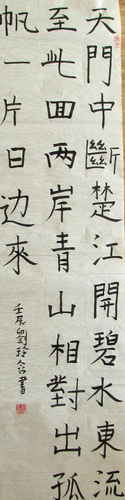 天門中斷楚江開碧水東流
至此回两岸青山相對出孤
帆一片日边來
壬辰劉玲合書